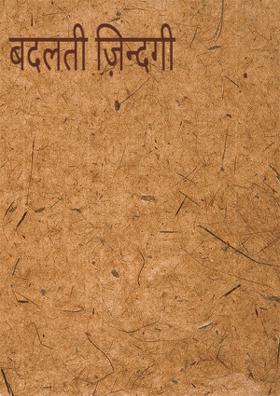 बदलती ज़िन्दगी